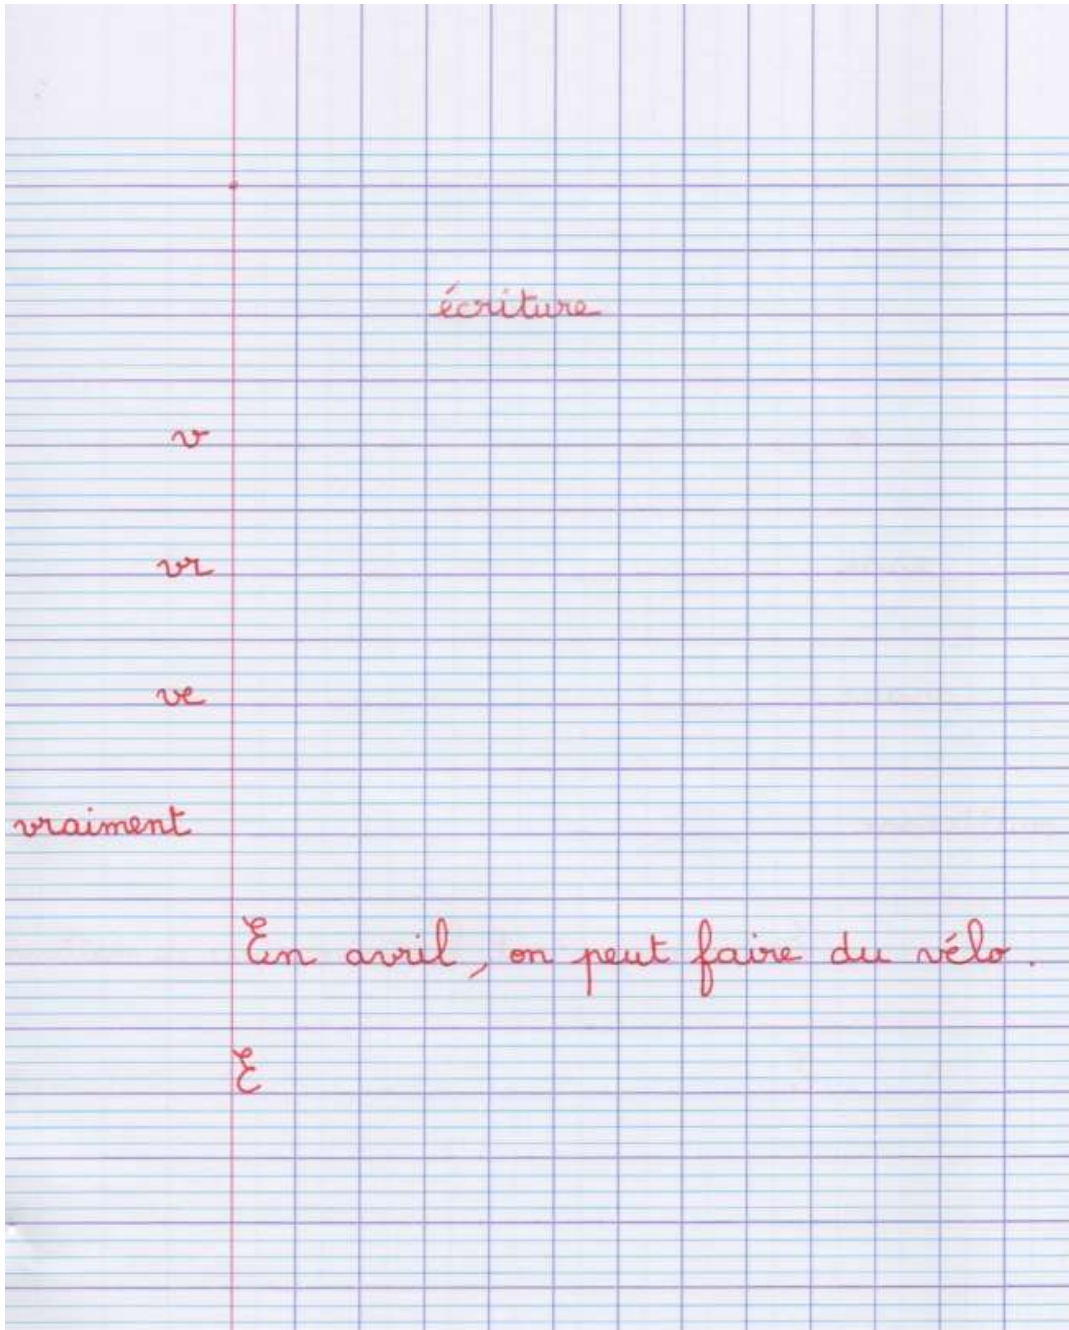 écriture
v
vr
ve
vraiment
En avril, on peut faire du vélo.
E